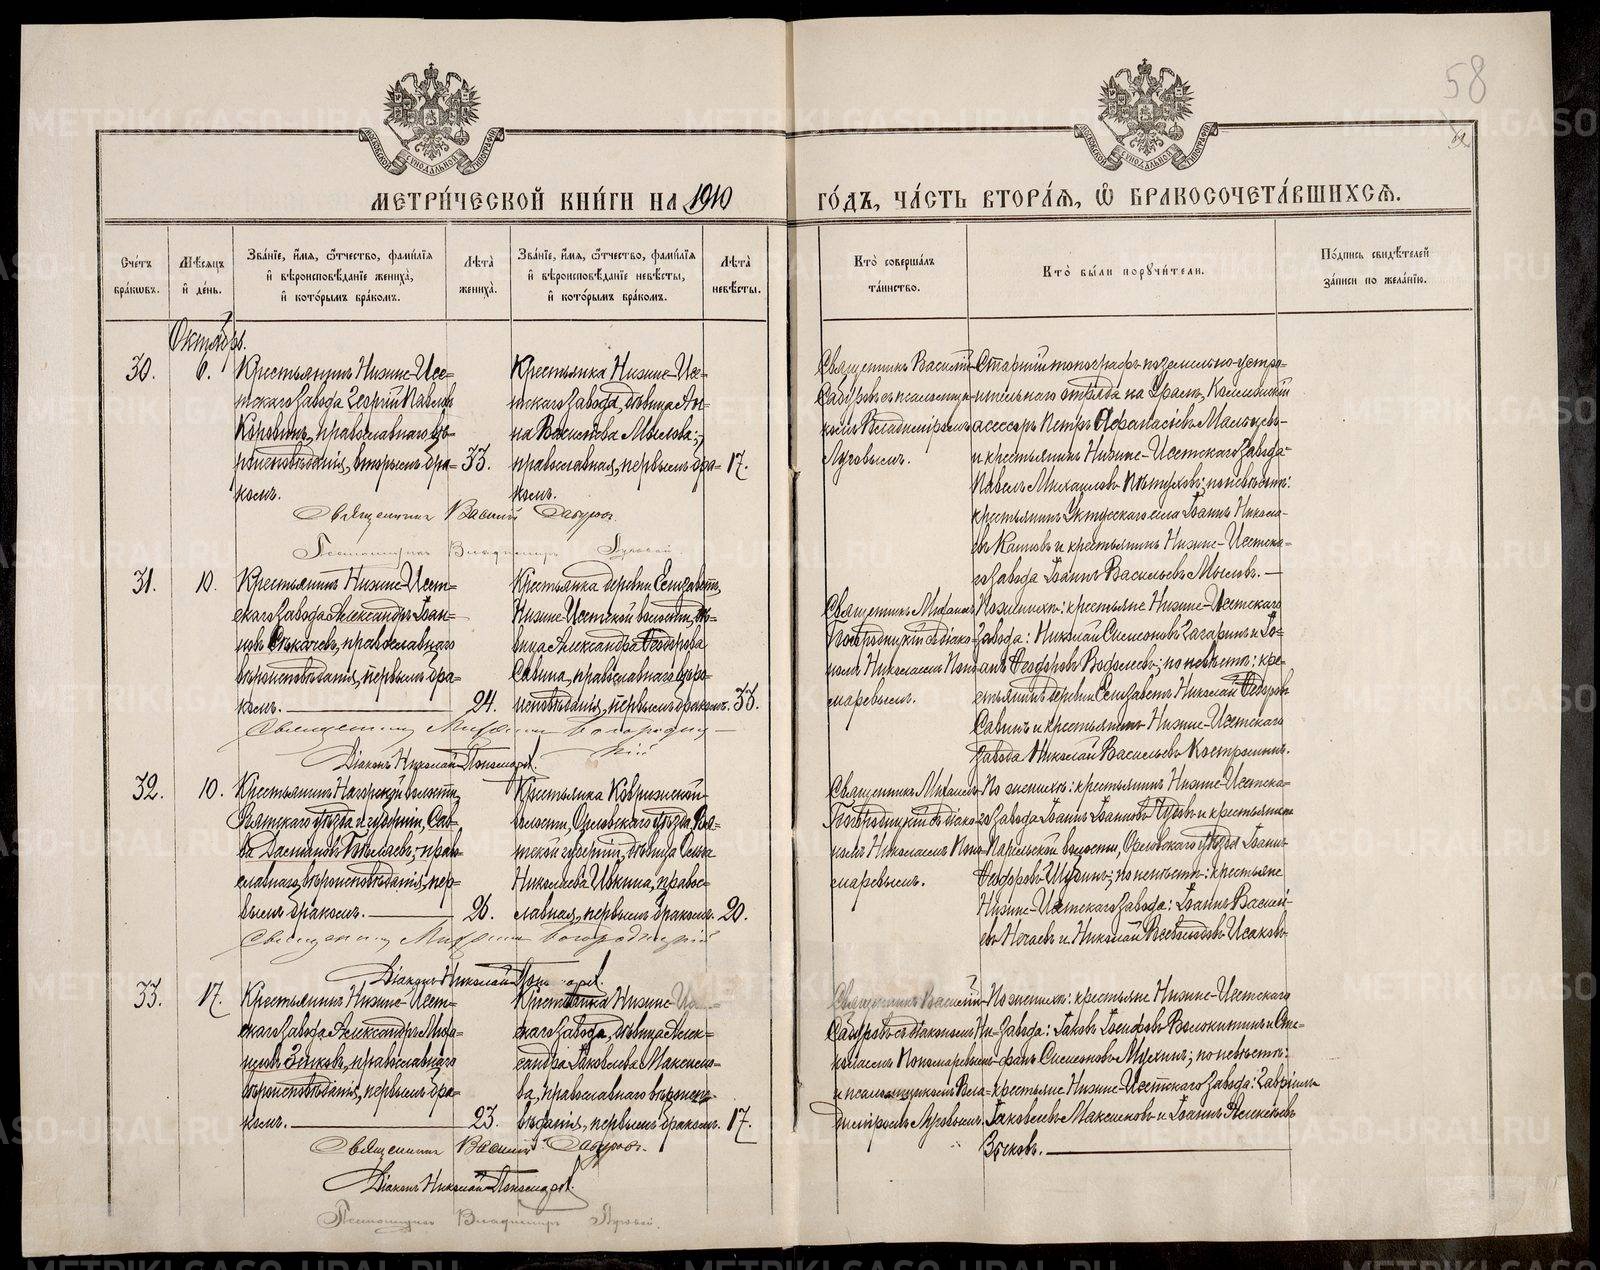 58
МЕТРИ́ЧЕСКОЙ КНИ́ГИ НА 1910
ГО́ДЪ, ЧА́СТЬ ВТОРА́Я, Ѿ БРАКОСОЧЕТА́ВШИХСЯ.
Сче́тъ бра́ковъ.
Мѣ́сяцъ и҆ де́нь.
Зва́нїе, и҆́мя, ѻ҆́тчество, фами́лїя
и҆ вѣроисповѣ́данїе жениха̀,
и҆ кото́рымъ бра́комъ.
Лѣта̀ жениха̀.
Зва́нїе, и҆́мя, ѻ҆́тчество, фами́лїя
и҆ вѣроисповѣ́данїе невѣ́сты,
и҆ кото́рымъ бра́комъ.
Лѣта̀ невѣ́сты.
Кто̀ соверша́лъ
та́инство.
Кто̀ бы́ли поручи́тели.
По́дпись свидѣ́телей
за́писи по жела́нїю.
Октябрь.
30.
6.
Крестьянинъ Нижне-Исе-
тскаго завода Георгій Павловъ
Коровинъ, православнаго вѣ-
роисповѣданія, вторымъ бра-
комъ.
33.
Крестьянка Нижне-Исе-
тскаго завода, дѣвица Ан-
на Васильева Мылова,
православная, первымъ бра-
комъ.
17.
Священникъ Василій
Сабуровъ съ псаломщи-
комъ Владиміромъ
Луговымъ.
Старшій топографъ поземельно-устро-
ительнаго отряда на Уралѣ, Коллежскій
асессоръ Петръ Афанасіевъ Мальцевъ
и крестьянинъ Нижне-Исетскаго завода
Павелъ Михаиловъ Пѣтуховъ; по невѣстѣ:
крестьянинъ Уктусскаго села Іоаннъ Никола-
евъ и крестьянинъ Нижне-Исетска-
го завода Іоаннъ Васильевъ Мыловъ.
Священникъ Василій Сабуровъ.
Псаломщикъ Владиміръ Луговой.
31.
10.
Крестьянинъ Нижне-Исет-
скаго завода Александръ Іоан-
новъ православнаго
вѣроисповѣданія, первымъ бра-
комъ.
24.
Крестьянка деревни Елизаветъ,
Нижне-Исетской волости, дѣ-
вица Александра Ѳеодорова
Савина, православнаго вѣро-
исповѣданія, первымъ бракомъ.
33.
Священникъ Михаилъ
Богородицкій съ діако-
номъ Николаемъ Поно-
маревымъ.
По женихѣ: крестьяне Нижне-Исетскаго
завода: Николай Симеоновъ Загаринъ и Іо-
аннъ Ѳеодоровъ; по невѣстѣ: кре-
стьянинъ деревни Елизаветъ Николай Ѳеодоровъ
Савинъ и крестьянинъ Нижне-Исетскаго
завода Николай Васильевъ Костроминъ.
Священникъ Михаилъ Богородиц-
кій
Діаконъ Николай Пономаревъ.
32.
10.
Крестьянинъ Нагорской волости,
Вятскаго уѣзда и губерніи, Сав-
ва право-
славнаго вѣроисповѣданія, пер-
вымъ бракомъ.
26.
Крестьянка
волости, Орловскаго уѣзда, Вя-
тской губерніи, дѣвица
Николаева Ивкина, правос-
лавная, первымъ бракомъ.
20.
Священникъ Михаилъ
Богородицкій съ діако-
номъ Николаемъ Поно-
маревымъ.
По женихѣ: крестьянинъ Нижне-Исетска-
го завода Іоаннъ Іоанновъ и крестьянинъ
волости, Орловскаго уѣзда Іоаннъ
Ѳеодоровъ; по невѣстѣ: крестьяне
Нижне-Исетскаго завода: Іоаннъ Василь-
евъ Нечаевъ и Николай Всеволодовъ Исаковъ
Священникъ Михаилъ Богородицкій
Діаконъ Николай Пономаревъ.
33.
17.
Крестьянинъ Нижне-Исет-
скаго завода Александръ Миха-
иловъ Зыковъ, православнаго
вѣроисповѣданія, первымъ бра-
комъ.
23.
Крестьянка Нижне-Исет-
скаго завода, дѣвица Алек-
сандра Іаковлева Максимо-
ва, православнаго вѣроиспо-
вѣданія, первымъ бракомъ.
17.
Священникъ Василій
Сабуровъ съ діакономъ Ни-
колаемъ Пономаревымъ
и псаломщикомъ Вла-
диміромъ Луговымъ.
По женихѣ: крестьяне Нижне-Исетскаго
завода: Іаковъ Іосифовъ Волокитинъ и Сте-
фанъ Симеоновъ Мухинъ; по невѣстѣ:
крестьяне Нижне-Исетскаго завода: Гавріилъ
Іаковлевъ Максимовъ и Іоаннъ Алексѣевъ
Зыковъ.
Священникъ Василій Сабуровъ.
Діаконъ Николай Пономаревъ.
Псаломщикъ Владиміръ Луговой.
METRIKI.GASO-URAL.RU